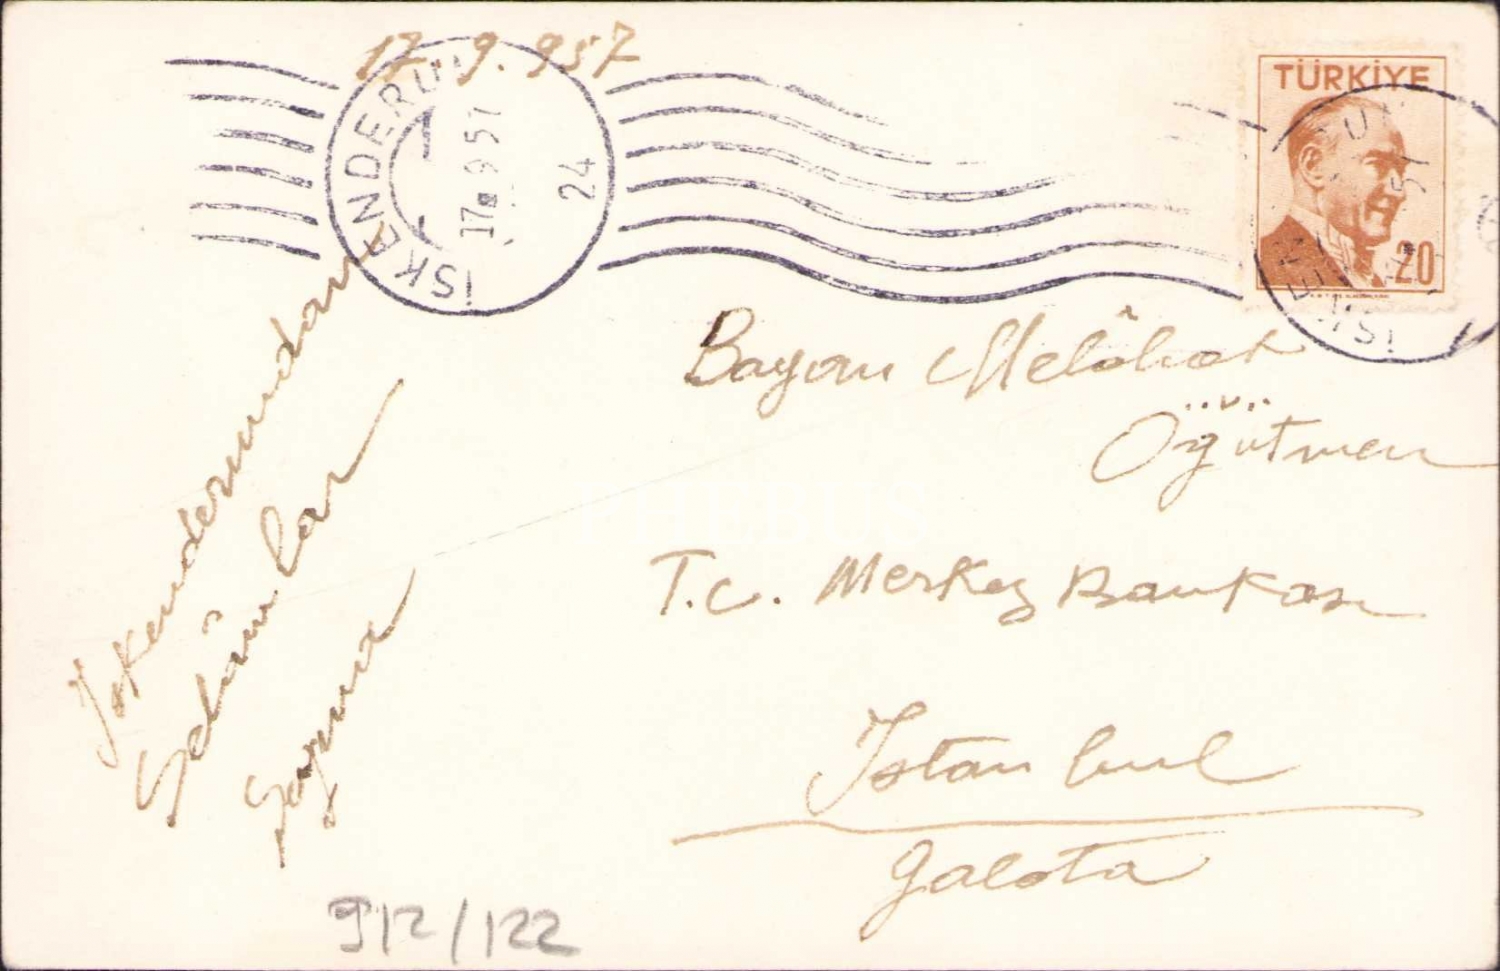 17.9.957
İSKENDERUN
17.9.57
24
TÜRKİYE
20
İskenderundan
Selâmlar
Bayan Melâhat
Öğütmen
T.C. Merkez Bankası
İstanbul
Galata
912/122
PHEBUS